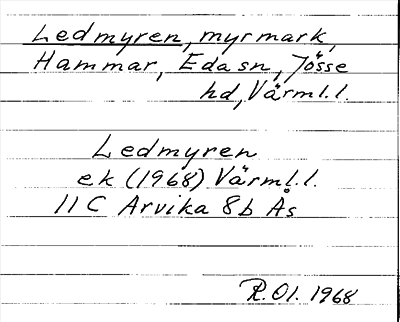 Ledmyren, myrmark,
Hammar, Eda sn, Jösse
hd, Värml.l.
Ledmyren
ek (1968) Värml.l.
11 C Arvika 8b Ås
R.O1. 1968